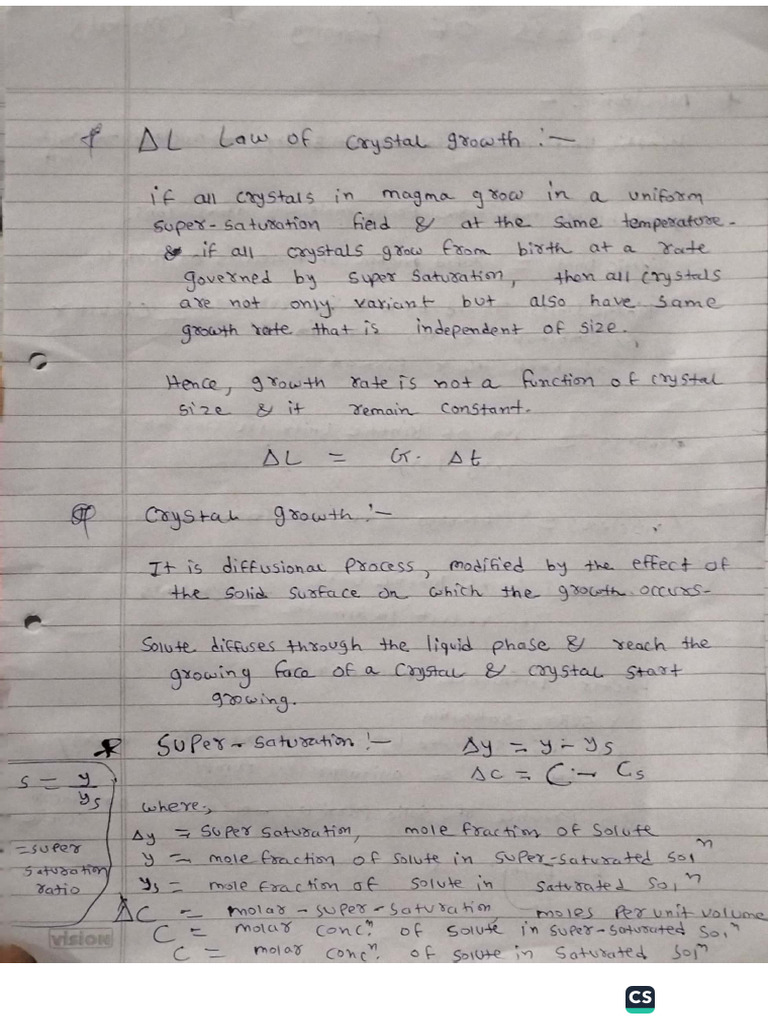 ΔL Law of crystal growth :-
if all crystals in magma grow in a uniform
super-saturation field & at the same temperature.
& if all crystals grow from birth at a rate
governed by super saturation, then all crystals
are not only variant but also have same
growth rate that is independent of size.
Hence, growth rate is not a function of crystal
size & it remain constant.
ΔL = G. Δt
Crystal growth :-
It is diffusional process, modified by the effect of
the solid surface on which the growth occurs-
Solute diffuses through the liquid phase & reach the
growing face of a crystal & crystal start
growing.
Super-saturation :- Δy = y - ys
Δc = C - Cs
s = y/ys
= super
saturation
ratio
where,
Δy = super saturation, mole fraction of solute
y = mole fraction of solute in super-saturated solⁿ
ys = mole fraction of solute in saturated solⁿ
ΔC = molar-super-saturation, moles per unit volume
C = molar concⁿ. of solute in super-saturated solⁿ
C = molar concⁿ. of solute in saturated solⁿ
vision
CS